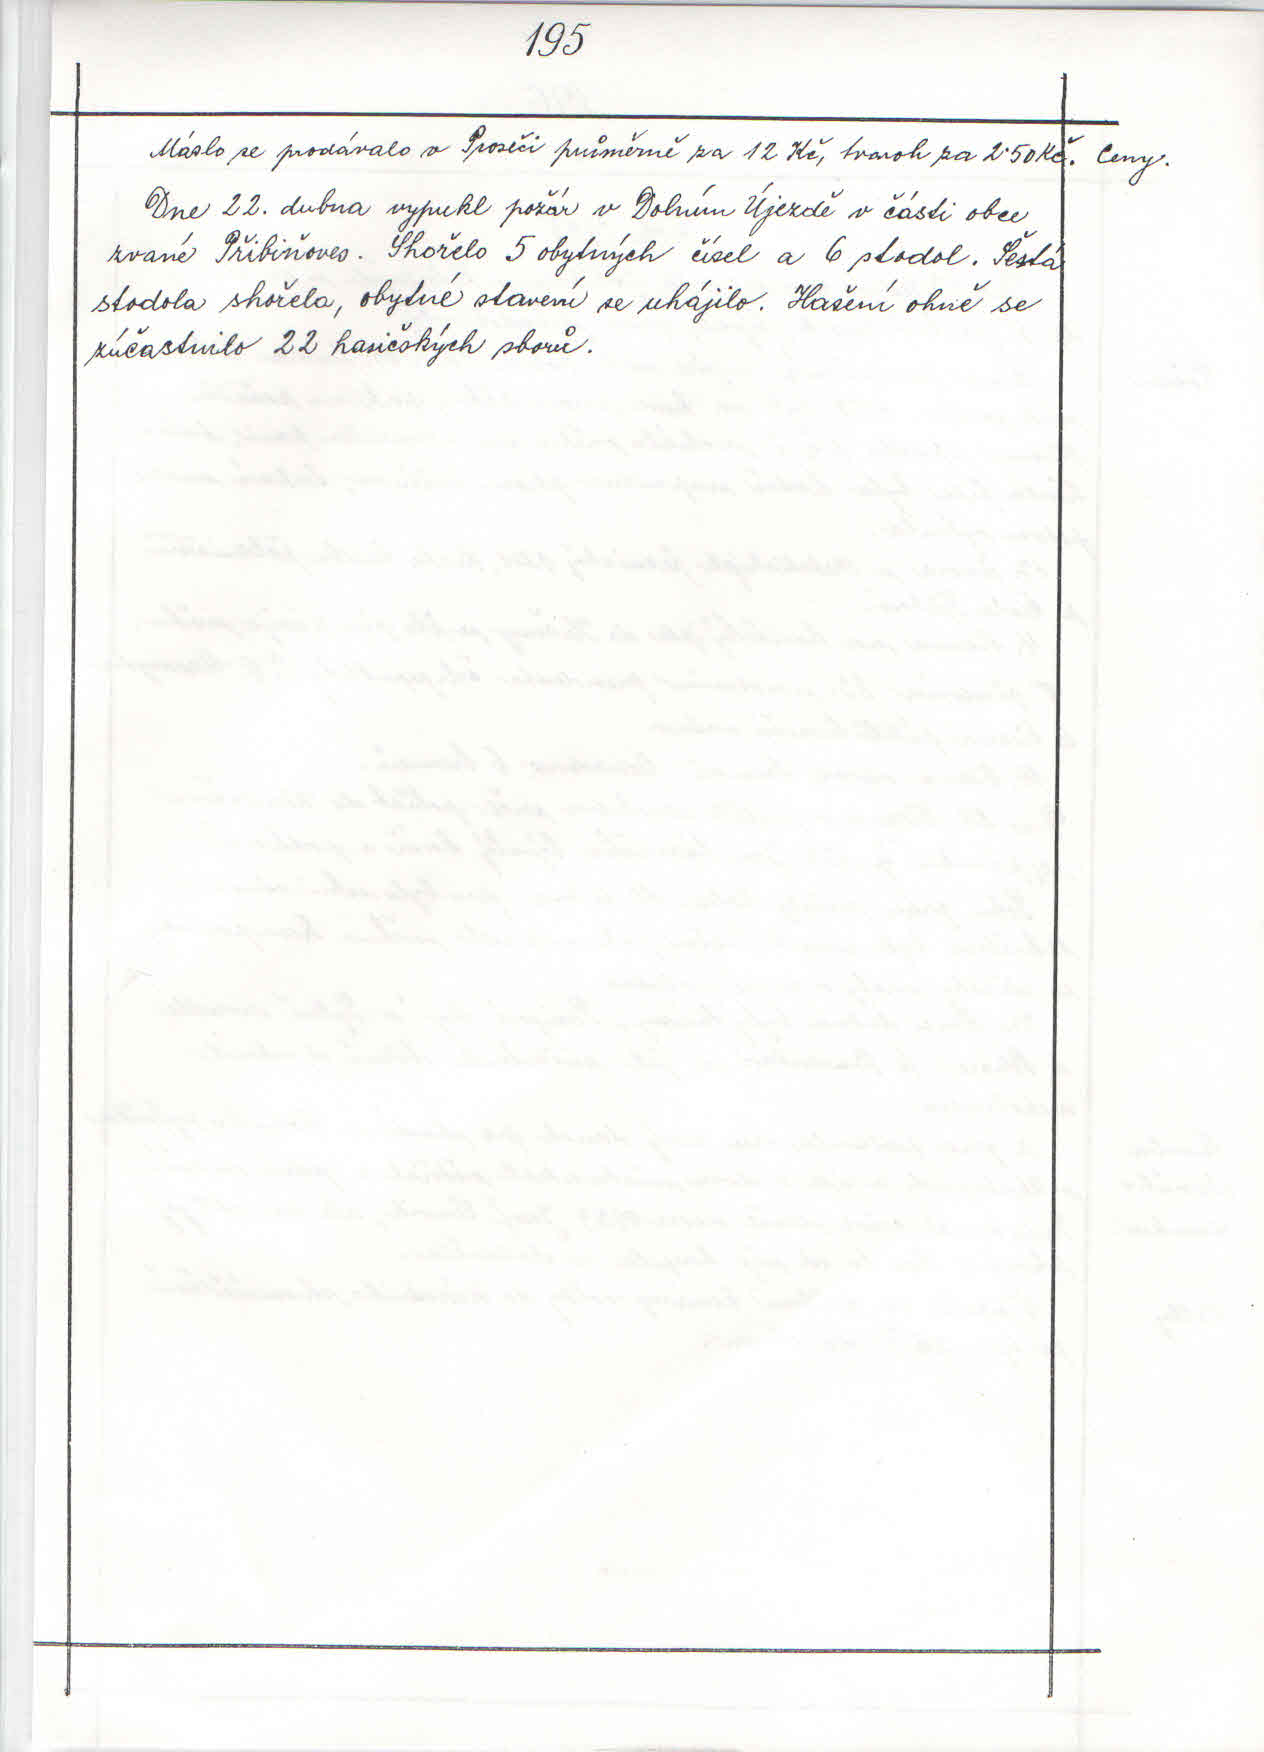 195
Máslo se prodávalo v Proseči průměrně za 12 Kč, tvaroh za 2·50 Kč. Ceny.
Dne 22. dubna vypukl požár v Dolním Újezdě v části obce
zvané Přibiňoves. Shořelo 5 obytných čísel a 6 stodol. Šestá
stodola shořela, obytné stavení se uhájilo. Hašení ohně se
zúčastnilo 22 hasičských sborů.